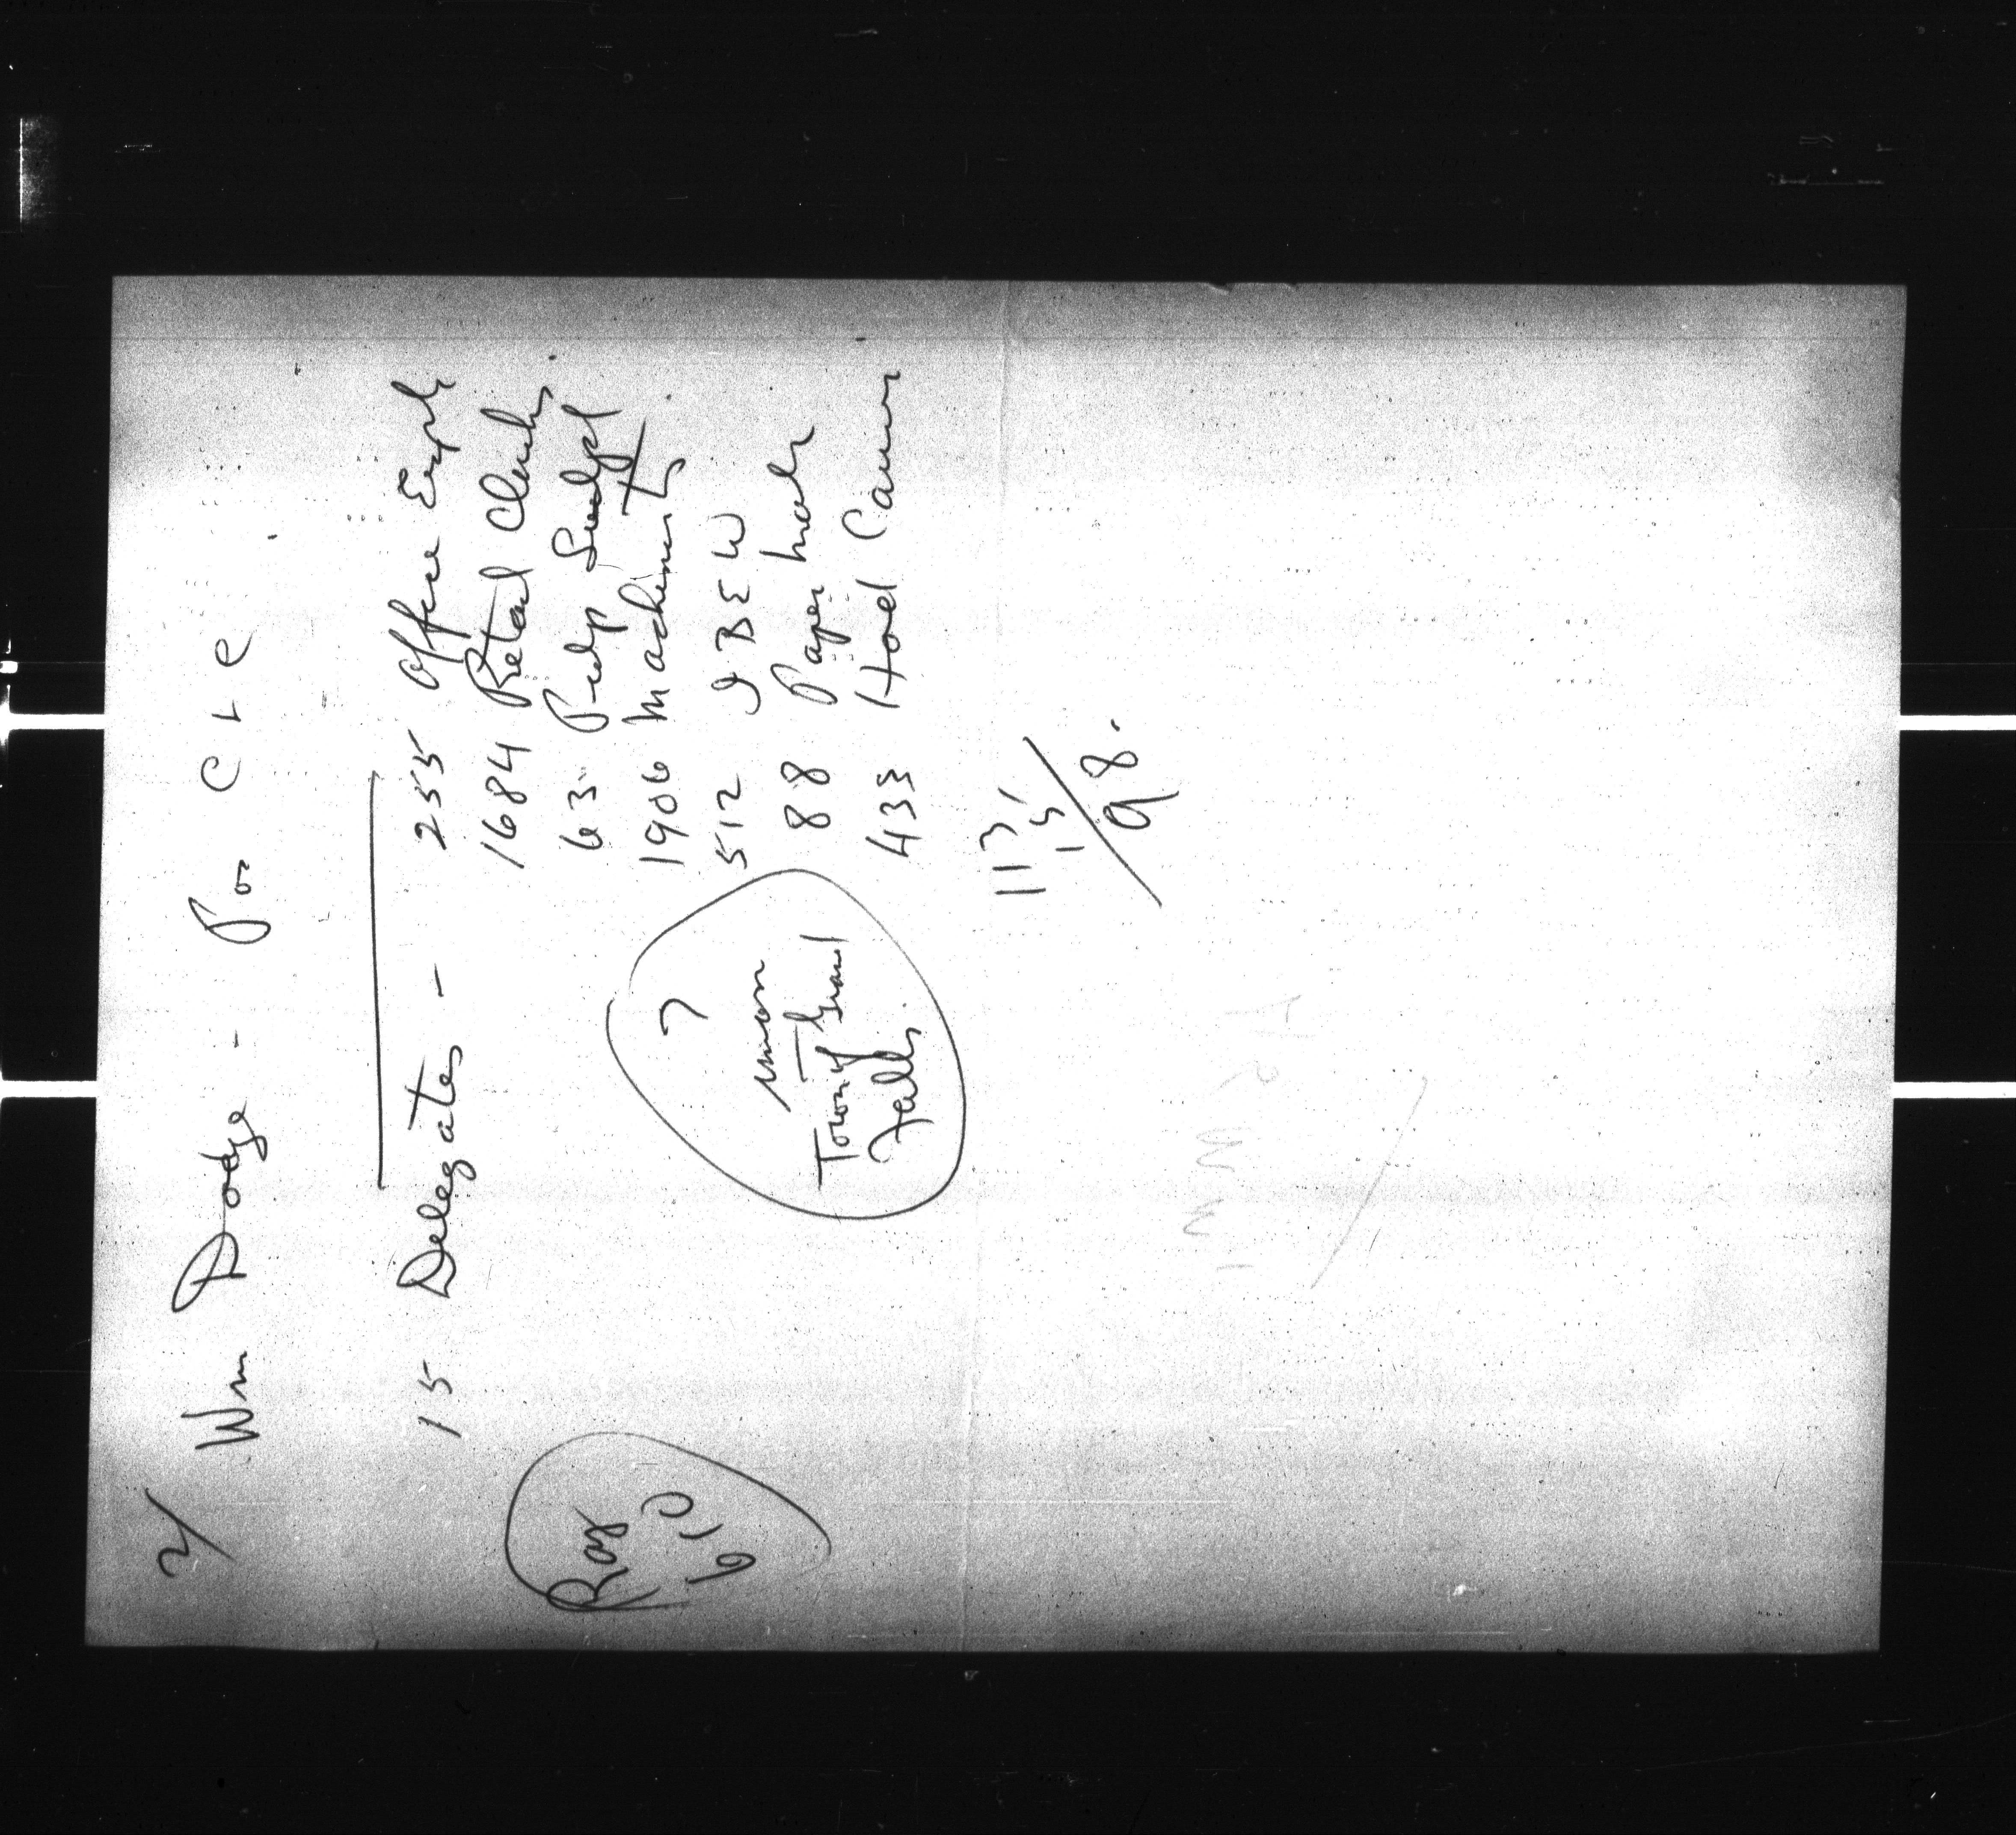 2/
Wm Dodge - Pro CLC
15 Delegates - 255 Office Empl
1684 Retail Clerks
63 Pulp Sulph
1906 Machinists
512 IBEW
88 Paper Mak
433 Hod Carriers
Ray
610
?
union
Town of Grand
Falls.
113
15
98.